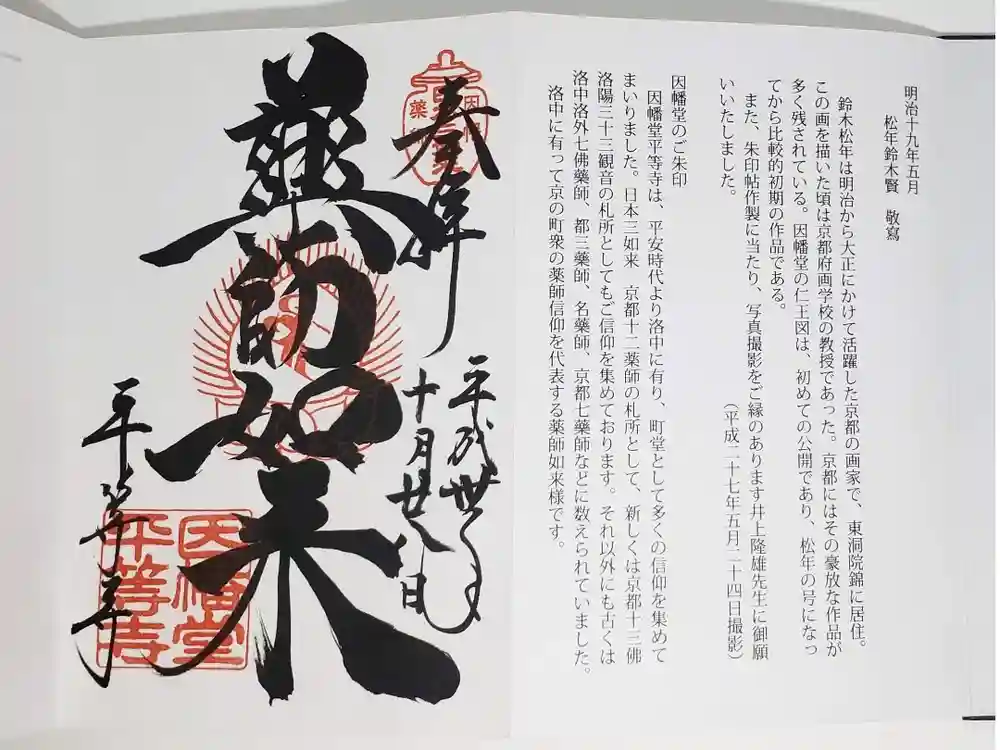 明治十九年五月
松年鈴木賢　敬寫
鈴木松年は明治から大正にかけて活躍した京都の画家で、東洞院錦に居住。
この画を描いた頃は京都府画学校の教授であった。京都にはその豪放な作品が
多く残されている。因幡堂の仁王図は、初めての公開であり、松年の号になっ
てから比較的初期の作品である。
また、朱印帖作製に当たり、写真撮影をご縁のあります井上隆雄先生に御願
いいたしました。
（平成二十七年五月二十四日撮影）
因幡堂のご朱印
因幡堂平等寺は、平安時代より洛中に有り、町堂として多くの信仰を集めて
まいりました。日本三如来　京都十二薬師の札所として、新しくは京都十三佛
洛陽三十三観音の札所としてもご信仰を集めております。それ以外にも古くは
洛中洛外七佛藥師、都三藥師、名藥師、京都七藥師などに数えられていました。
洛中に有って京の町衆の薬師信仰を代表する薬師如来様です。
奉拝
平成卅年
十月廿八日
薬師如来
平等寺
因幡堂
平等寺